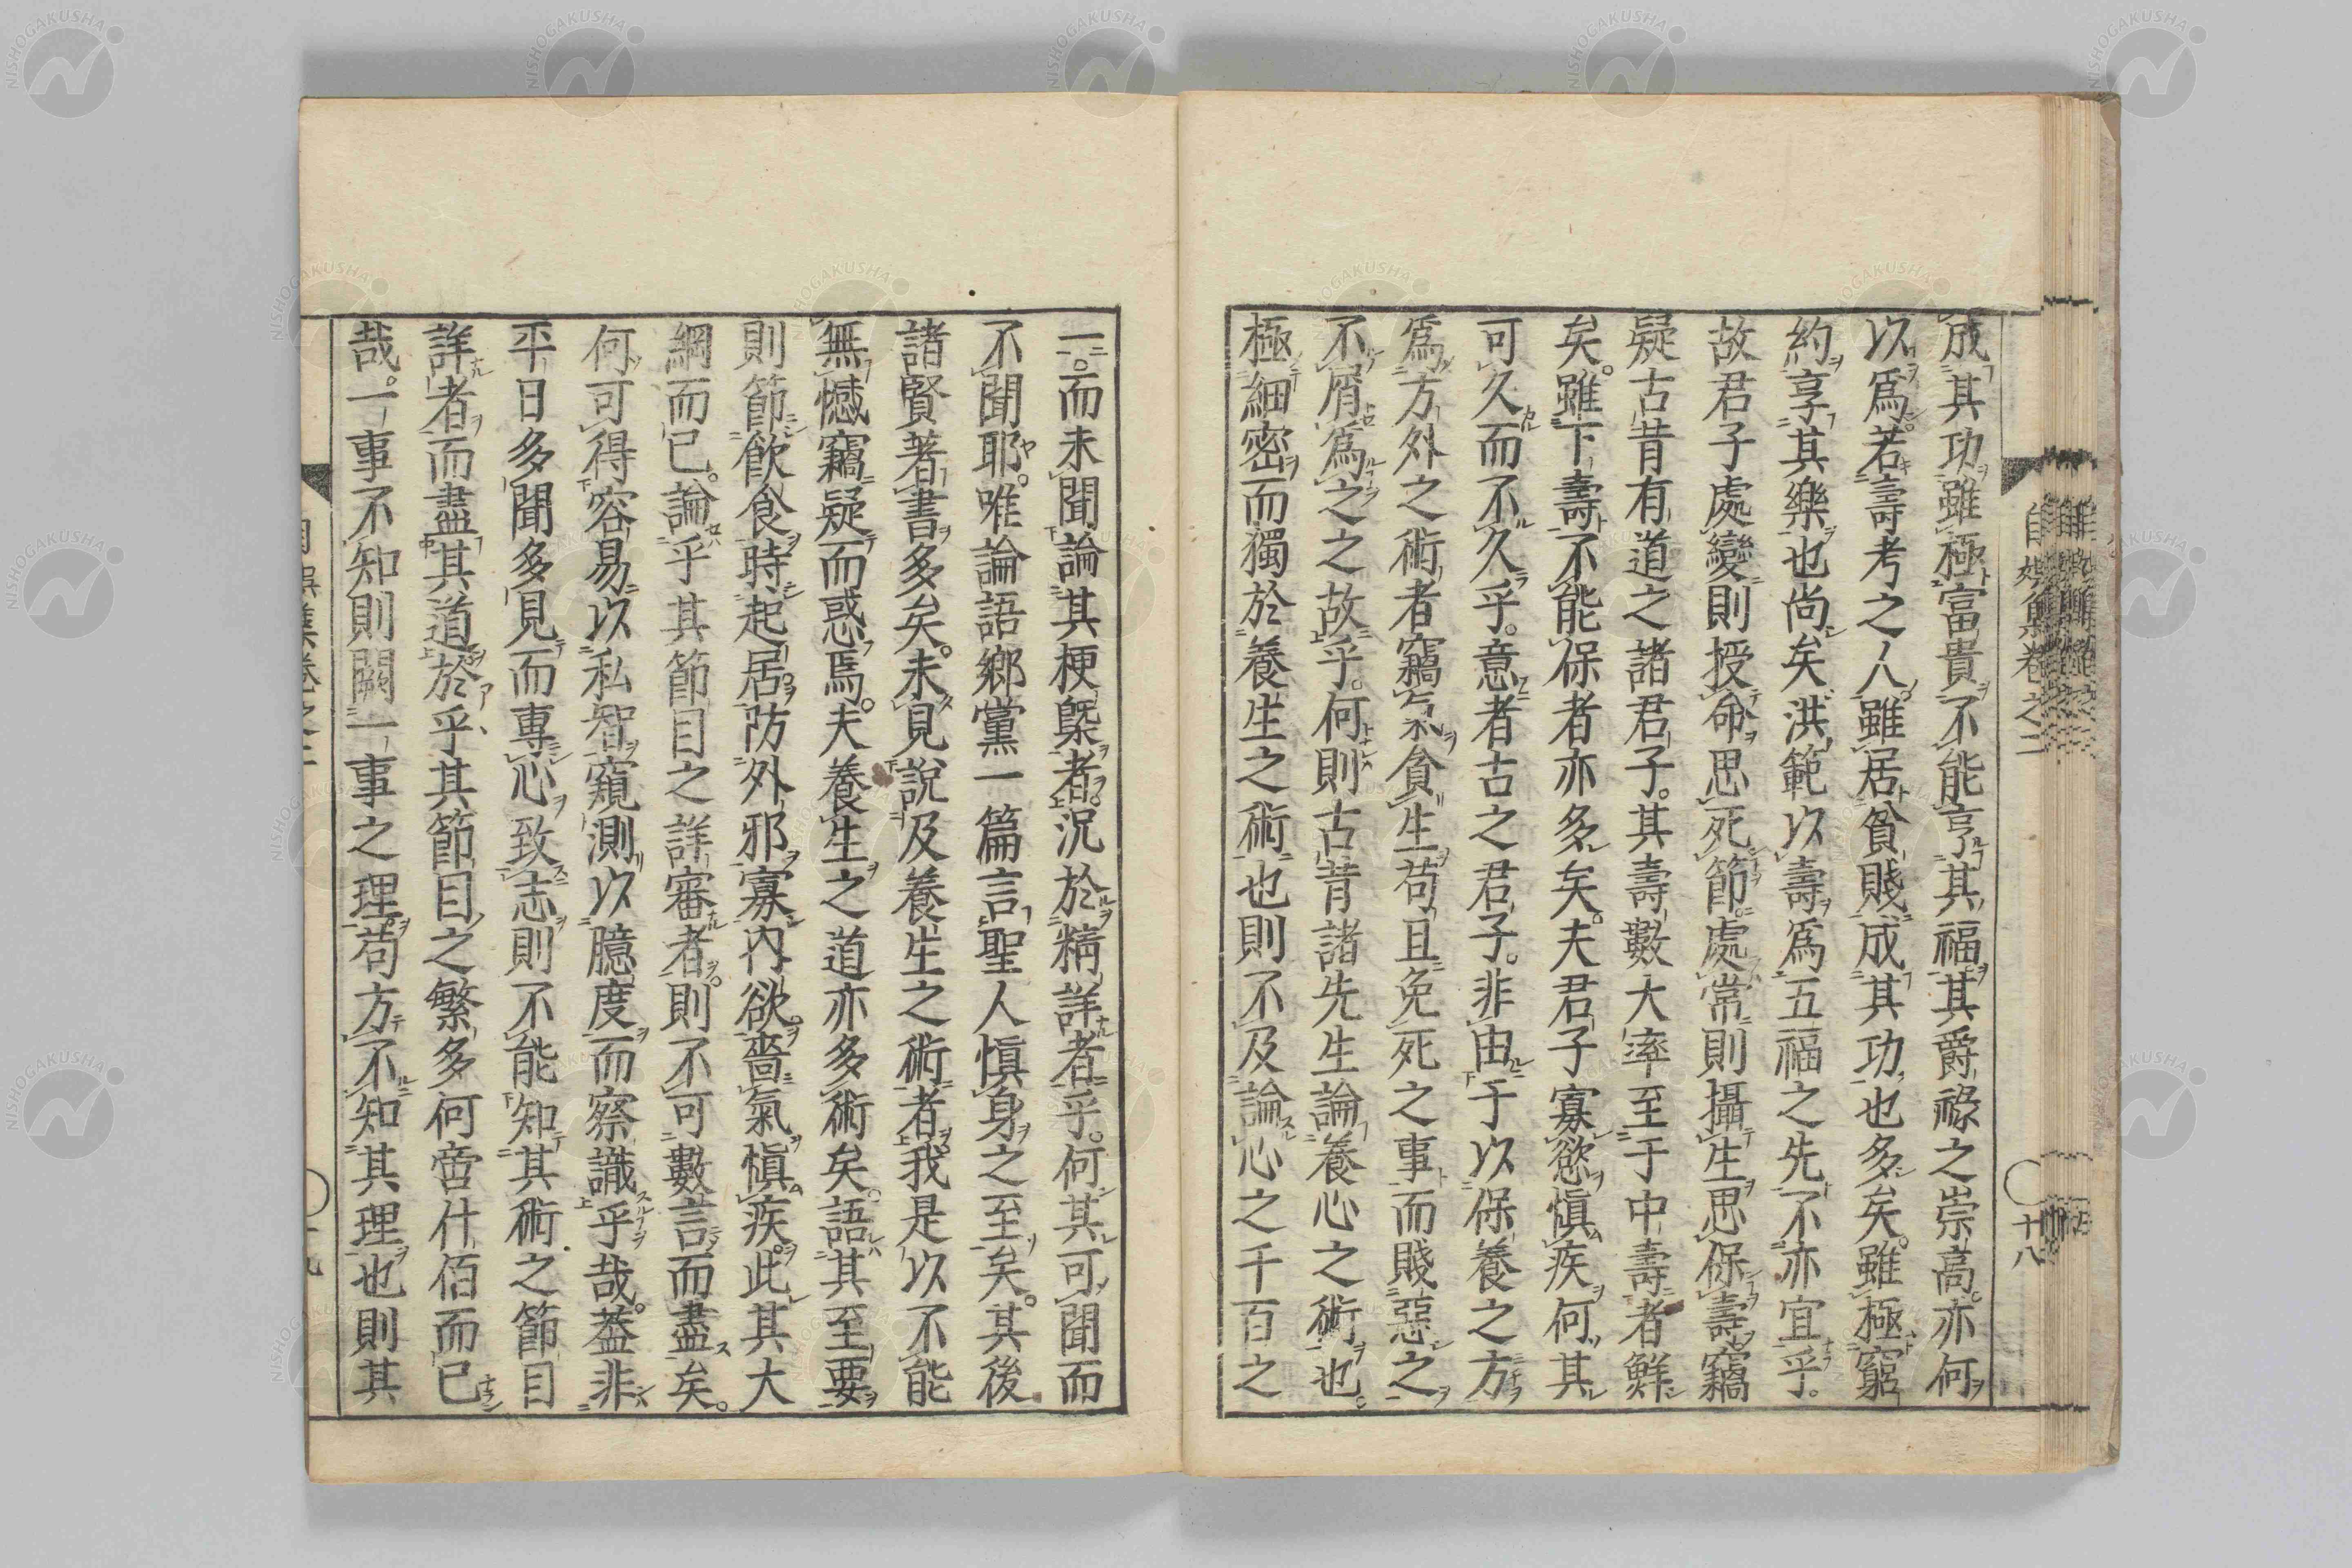 成其功雖極富貴不能享其福其爵祿之崇高亦何
以爲若壽考之人雖居貧賤成其功也多矣雖極窮
約享其樂也尚矣洪範以壽爲五福之先不亦宜乎
故君子處變則授命思死節處常則攝生思保壽竊
疑古昔有道之諸君子其壽數大率至于中壽者鮮
矣雖下壽不能保者亦多矣夫君子寡慾愼疾何其
可久而不久乎意者古之君子非由于以保養之方
爲方外之術者竊貪生苟且免死之事而賤惡之
不屑爲之之故乎何則古昔諸先生論養心之術也
極細密而獨於養生之術也則不及論心之千百之
自娯集卷之二
十八
一而未聞論其梗槩者況於精詳者乎何其可聞而
不聞耶唯論語鄉黨一篇言聖人愼身之至矣其後
諸賢著書多矣未見說及養生之術者我是以不能
無憾竊疑而惑焉夫養生之道亦多術矣語其至要
則節飲食時起居防外邪寡內欲嗇氣愼疾此其大
綱而已論乎其節目之詳審者則不可數言而盡矣
何可得容易以私智窺測以臆度而察識乎哉葢非
平日多聞多見而專心致志則不能知其術之節目
詳者而盡其道於乎其節目之繁多何啻什佰而已
哉一事不知則闕一事之理苟方不知其理也則其
NISHOGAKUSHA